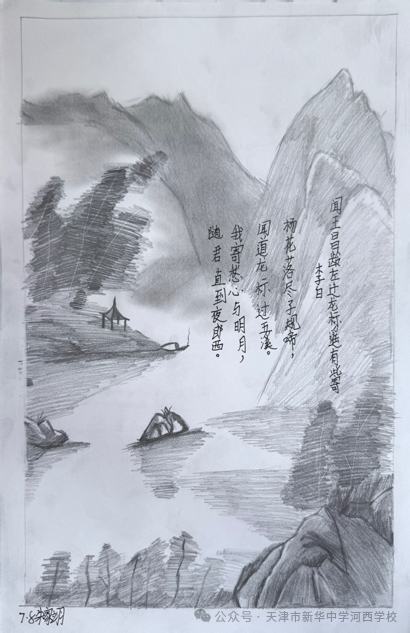 闻王昌龄左迁龙标遥有此寄
李白
杨花落尽子规啼，
闻道龙标过五溪。
我寄愁心与明月，
随君直到夜郎西。
7.8
公众号·天津市新华中学河西学校